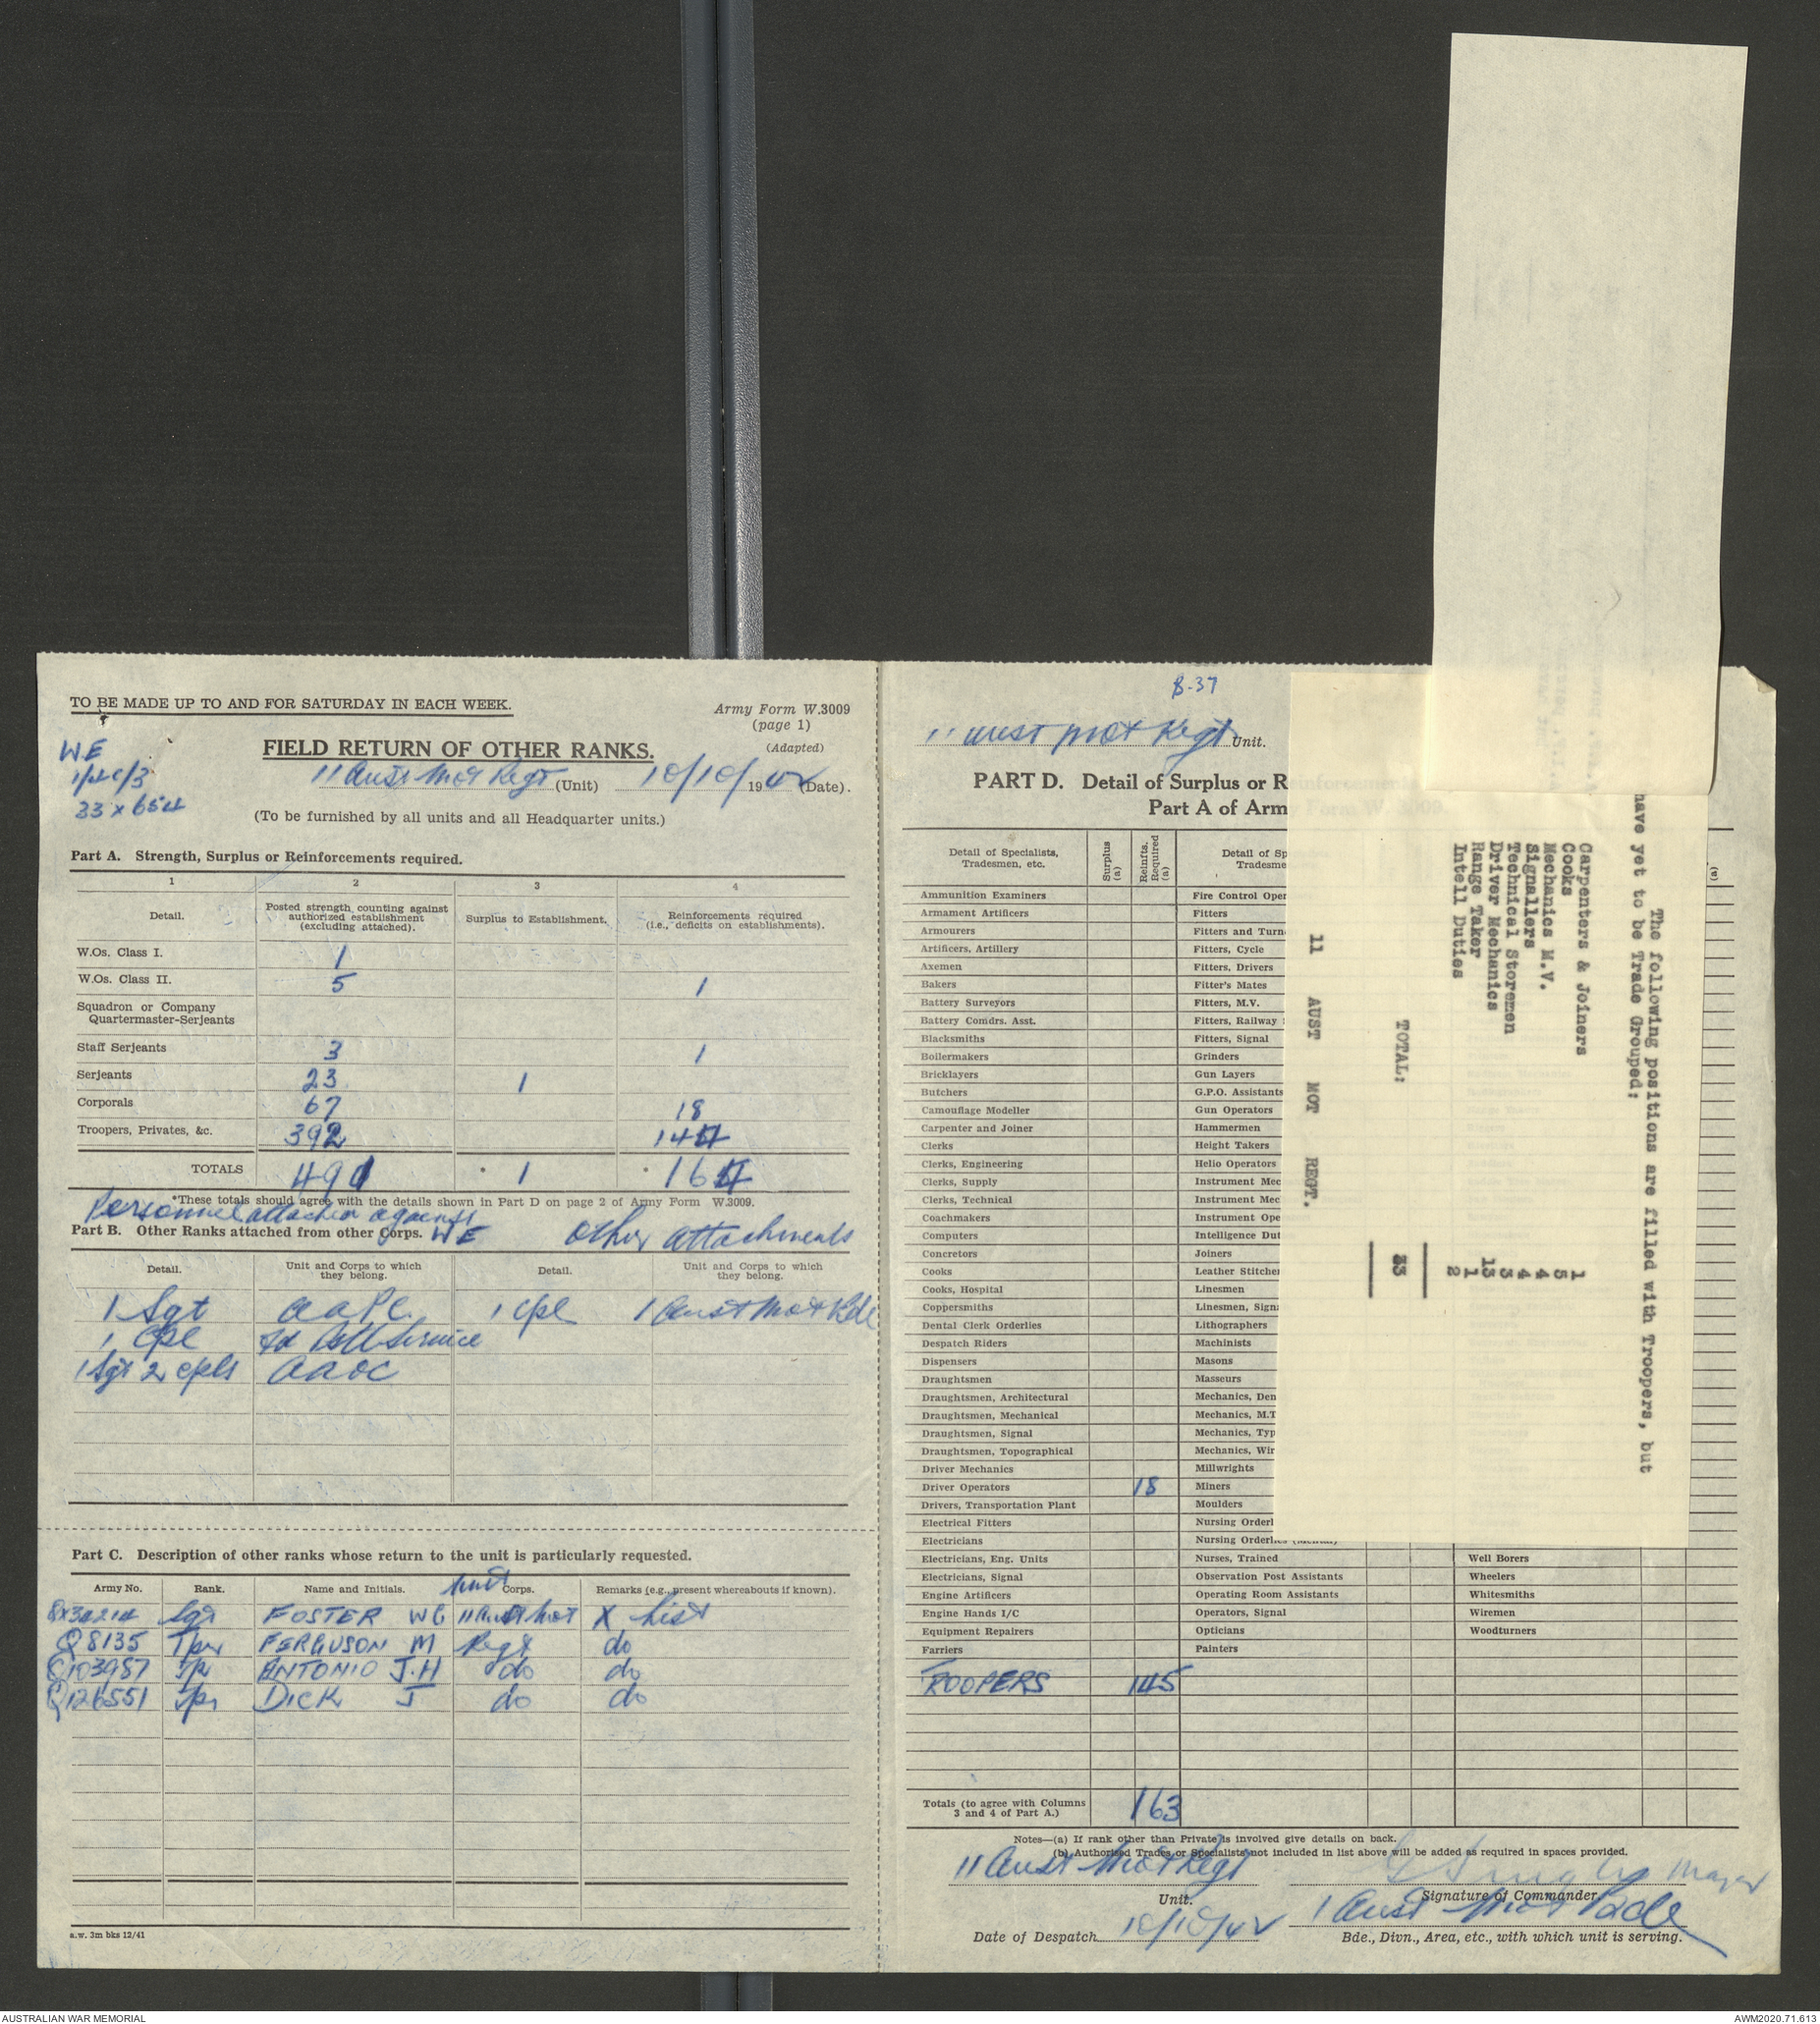 TO BE MADE UP TO AND FOR SATURDAY IN EACH WEEK.
Army Form W.3009
(page 1)
(Adapted)
WE
33 x 654
FIELD RETURN OF OTHER RANKS.
11 Aust Mot Regt (Unit) 10/10/1942 (Date).
(To be furnished by all units and all Headquarter units.)
Part A. Strength, Surplus or Reinforcements required.
1 2 3 4
Detail. Posted strength counting against authorized establishment (excluding attached). Surplus to Establishment. Reinforcements required (i.e., deficits on establishments).
W.Os. Class I. 1
W.Os. Class II. 5 1
Squadron or Company Quartermaster-Serjeants
Staff Serjeants 3 1
Serjeants 23 1
Corporals 67 18
Troopers, Privates, &c. 392 144
TOTALS 491 * 1 * 164
*These totals should agree with the details shown in Part D on page 2 of Army Form W.3009.
Personnel attached against WE
Part B. Other Ranks attached from other Corps. Other Attachments
Detail. Unit and Corps to which they belong. Detail. Unit and Corps to which they belong.
1 Sgt AAPC 1 Cpl 1 Aust Mot Bde
1 Cpl Service
1 Sgt 2 Cpls AAOC
Part C. Description of other ranks whose return to the unit is particularly requested.
Army No. Rank. Name and Initials. Unit Corps. Remarks (e.g., present whereabouts if known).
Sgt FOSTER W 11 Aust Mot X List
Q8135 Tpr FERGUSON M Regt do
Q103987 Tpr ANTONIO J.H do do
Q126551 Tpr DICK J do do
a.w. 3m bks 12/41
B-37
11 Aust Mot Regt Unit.
PART D. Detail of Surplus or R
Part A of Arm
Detail of Specialists, Tradesmen, etc. Surplus (a) Reinfts. Required (a) Detail of Sp
Tradesme
(a)
Ammunition Examiners Fire Control Oper
Armament Artificers Fitters
Armourers Fitters and Turn
Artificers, Artillery Fitters, Cycle
Axemen Fitters, Drivers
Bakers Fitter's Mates
Battery Surveyors Fitters, M.V.
Battery Comdrs. Asst. Fitters, Railway
Blacksmiths Fitters, Signal
Boilermakers Grinders
Bricklayers Gun Layers
Butchers G.P.O. Assistants
Camouflage Modeller Gun Operators
Carpenter and Joiner Hammermen
Clerks Height Takers
Clerks, Engineering Helio Operators
Clerks, Supply Instrument Mec
Clerks, Technical Instrument Mec
Coachmakers Instrument Ope
Computers Intelligence Dut
Concretors Joiners
Cooks Leather Stitcher
Cooks, Hospital Linesmen
Coppersmiths Linesmen, Sign
Dental Clerk Orderlies Lithographers
Despatch Riders Machinists
Dispensers Masons
Draughtsmen Masseurs
Draughtsmen, Architectural Mechanics, Den
Draughtsmen, Mechanical Mechanics, M.T
Draughtsmen, Signal Mechanics, Typ
Draughtsmen, Topographical Mechanics, Wir
Driver Mechanics Millwrights
Driver Operators 18 Miners
Drivers, Transportation Plant Moulders
Electrical Fitters Nursing Orderl
Electricians Nursing Orderlies (Mental)
Electricians, Eng. Units Nurses, Trained Well Borers
Electricians, Signal Observation Post Assistants Wheelers
Engine Artificers Operating Room Assistants Whitesmiths
Engine Hands I/C Operators, Signal Wiremen
Equipment Repairers Opticians Woodturners
Farriers Painters
TROOPERS 145
Totals (to agree with Columns 3 and 4 of Part A.) 163
Notes—(a) If rank other than Private is involved give details on back.
(b) Authorized Trades or Specialists not included in list above will be added as required in spaces provided.
11 Aust Mot Regt Major
Unit. Signature of Commander.
1 Aust Mot Bde
Date of Despatch 10/10/42 Bde., Divn., Area, etc., with which unit is serving.
The following positions are filled with Troopers, but
have yet to be Trade Grouped:
Carpenters & Joiners 1
Cooks 5
Mechanics M.V. 4
Signallers 4
Technical Storemen 3
Driver Mechanics 13
Range Taker 1
Intell Duties 2
TOTAL: 33
11 AUST MOT REGT.
AUSTRALIAN WAR MEMORIAL
AWM2020.71.613